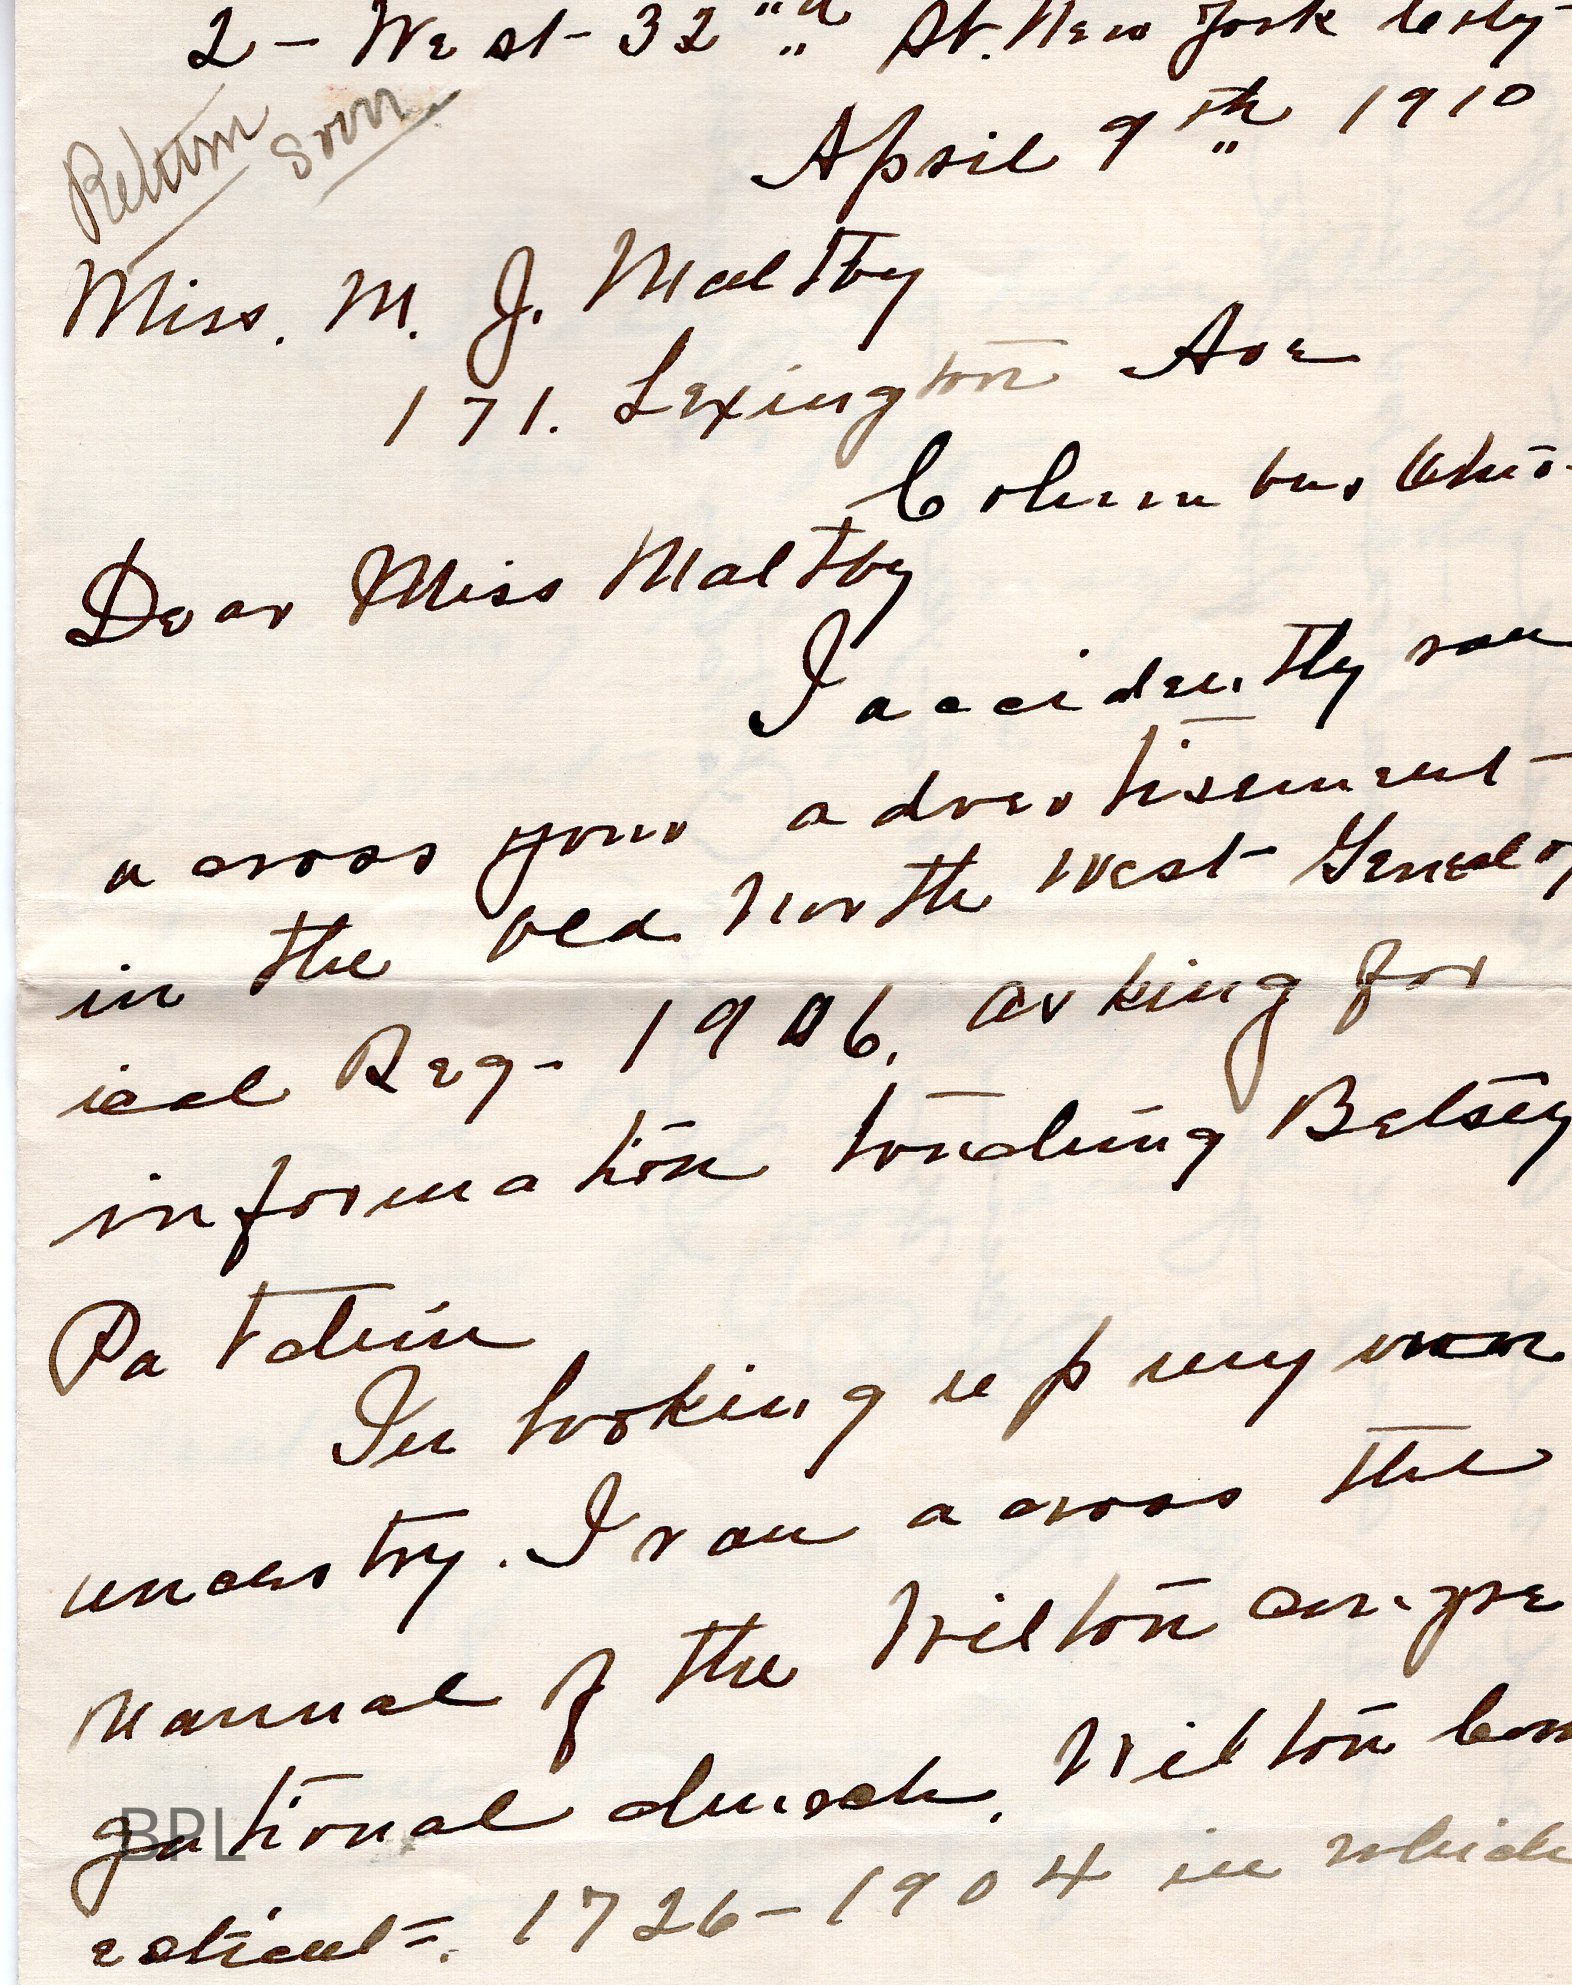 2 - West - 32 nd St. New York City
April 9th 1910
Return Soon
Miss. M. J. Maltby
171. Lexington Ave
Columbus Ohio.
Dear Miss Maltby
I accidently ran
across your advertisement
in the Old North West Genealog
ical Reg - 1906. asking for
information touching Betsey
Patchin
In looking up my own
ancestry. I ran across the
Manual of the Wilton congre
gational church, Wilton Conn
ecticut -. 1726 - 1904 in which
BPL